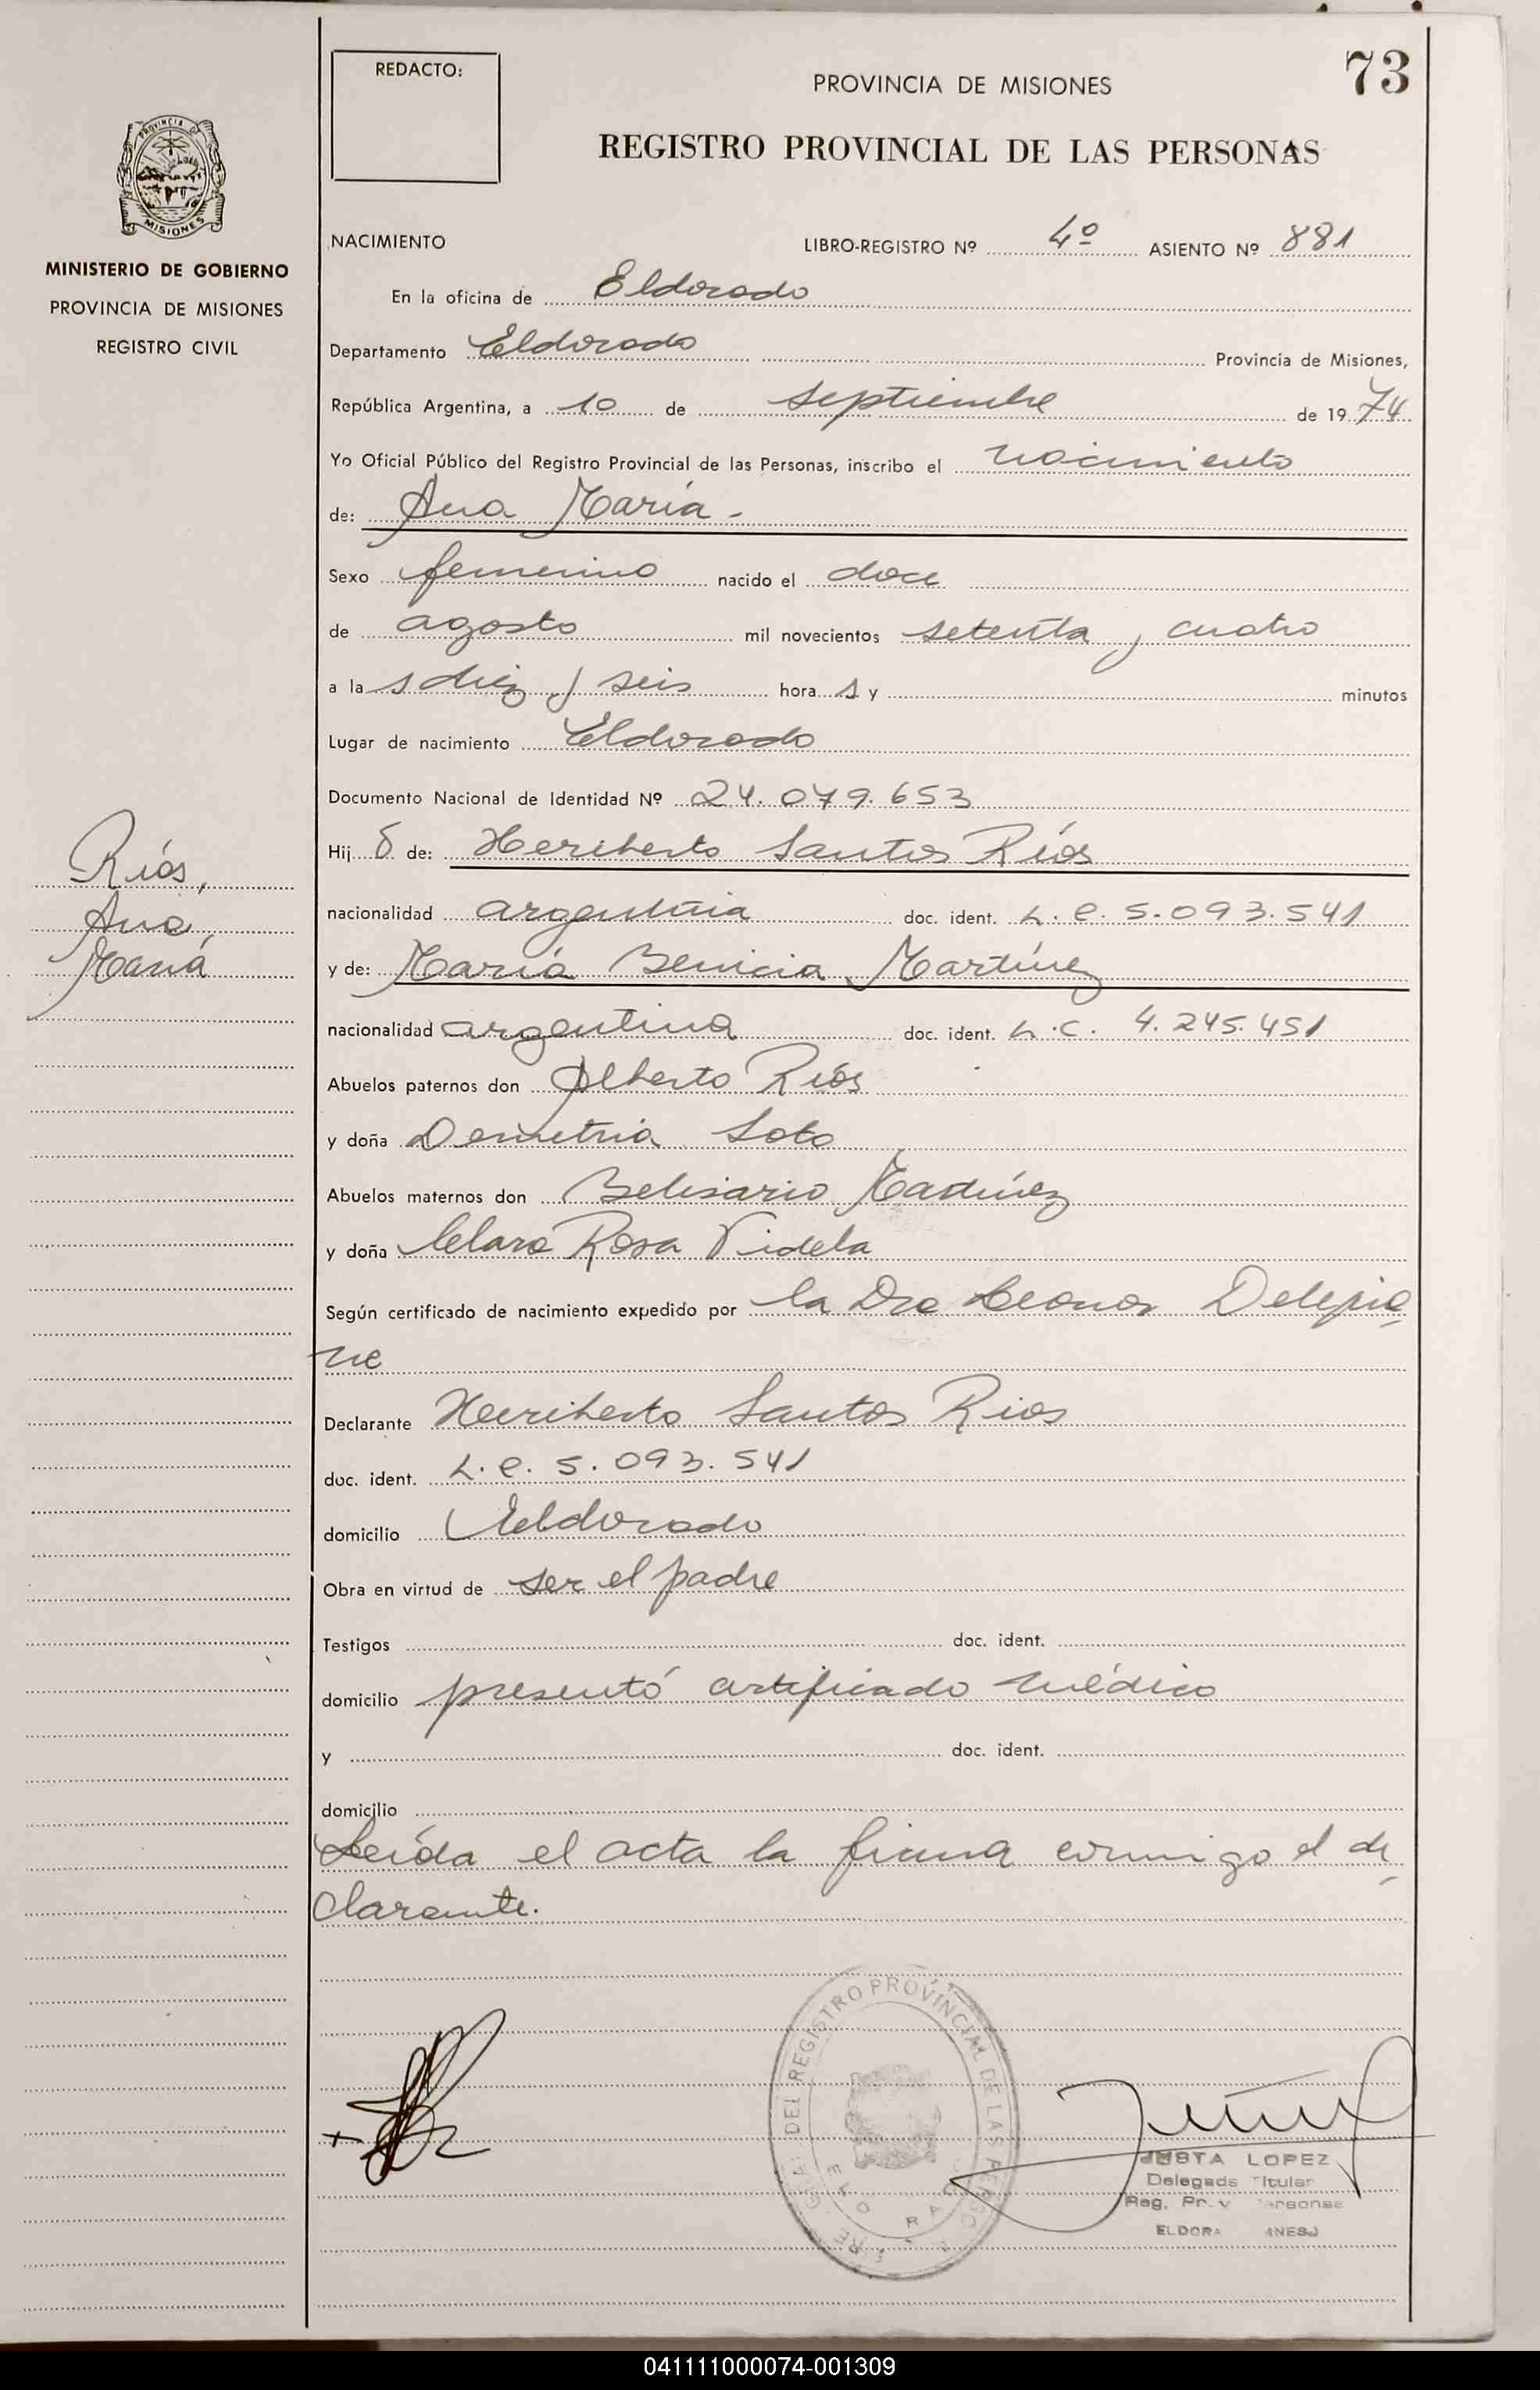 73
REDACTO:
PROVINCIA DE MISIONES
REGISTRO PROVINCIAL DE LAS PERSONAS
PROVINCIA DE
MISIONES
MINISTERIO DE GOBIERNO
PROVINCIA DE MISIONES
REGISTRO CIVIL
NACIMIENTO LIBRO-REGISTRO Nº 4º ASIENTO Nº 881
En la oficina de Eldorado
Departamento Eldorado Provincia de Misiones,
República Argentina, a 10 de septiembre de 1974
Yo Oficial Público del Registro Provincial de las Personas, inscribo el nacimiento
de: Ana María -
Sexo femenino nacido el doce
de agosto mil novecientos setenta y cuatro
a la s diez y seis hora s y minutos
Lugar de nacimiento Eldorado
Documento Nacional de Identidad Nº 24.079.653
Hij de: Heriberto Santos Ríos
Ríos,
Ana,
María
nacionalidad argentina doc. ident. L.e. 5.093.541
y de: María Benicia Martínez
nacionalidad argentina doc. ident. L.C. 4.245.451
Abuelos paternos don Alberto Ríos
y doña Demetria Soto
Abuelos maternos don Belisario Martínez
y doña Clara Rosa Videla
Según certificado de nacimiento expedido por la Dra Leonor Delepia
ne
Declarante Heriberto Santos Rios
doc. ident. L.e. 5.093.541
domicilio Eldorado
Obra en virtud de ser el padre
Testigos doc. ident.
domicilio presentó certificado médico
y doc. ident.
domicilio
Leída el acta la firma conmigo el de
clarante.
DEL REGISTRO PROVINCIAL DE LAS
LOPEZ
Delegada Titular
Reg.
041111000074-001309